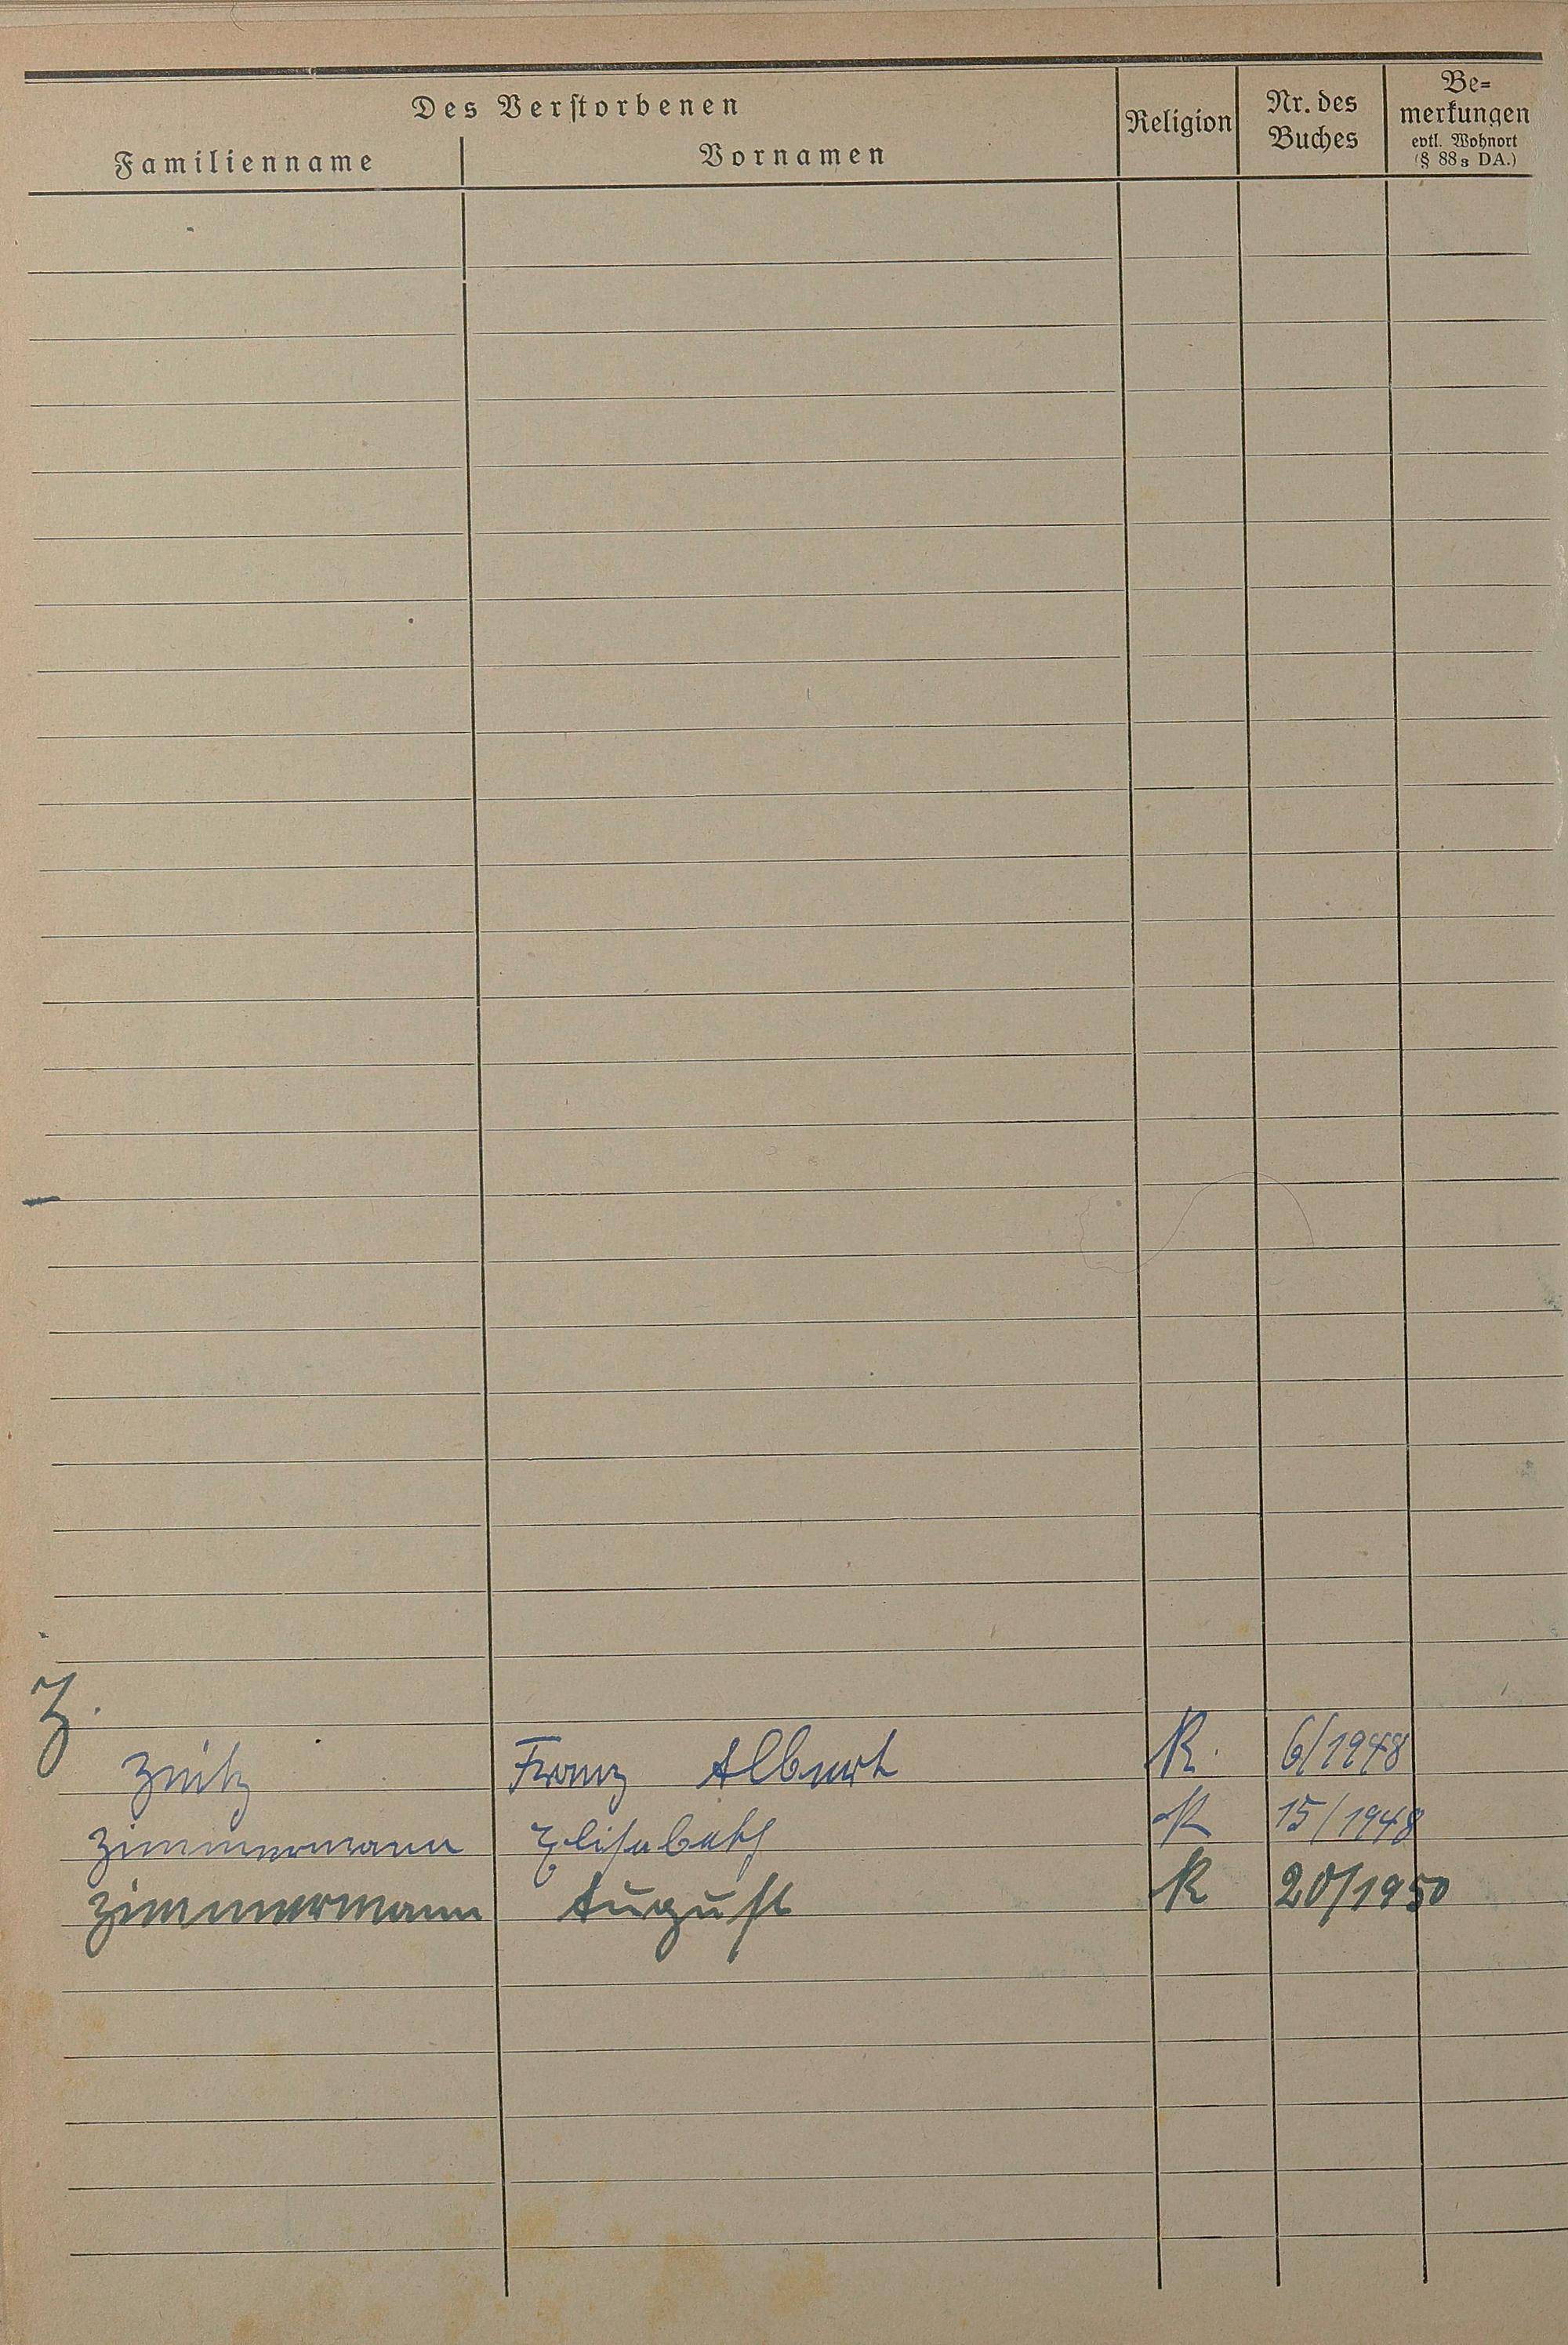 Des Verstorbenen
Familienname Vornamen Religion Nr. des Buches Be=merkungen evtl. Wohnort (§ 88₃ DA.)
Z.
Zeitz Franz Albert K. 6/1948
Zimmermann Elisabeth K 15/1948
Zimmermann August K 20/1950